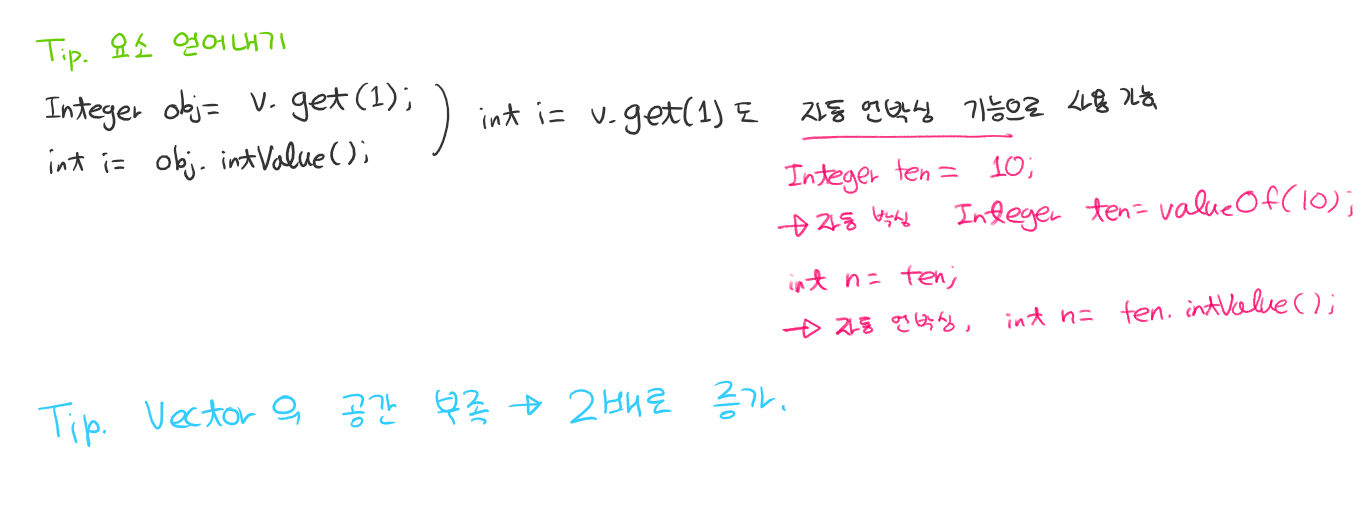 Tip. 요소 얻어내기
Integer obj= v. get(1);
int i= obj. intValue();
) int i= v.get(1)도 자동 언박싱 기능으로 사용 가능
Integer ten= 10;
→ 자동 박싱 Integer ten= valueOf(10);
int n= ten;
→ 자동 언박싱, int n= ten. intValue();
Tip. Vector의 공간 부족 → 2배로 증가.